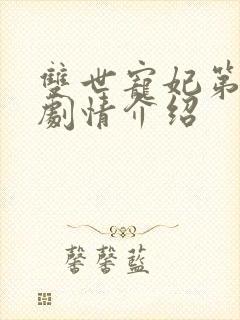 雙世寵妃第
劇情介紹
馨馨藍